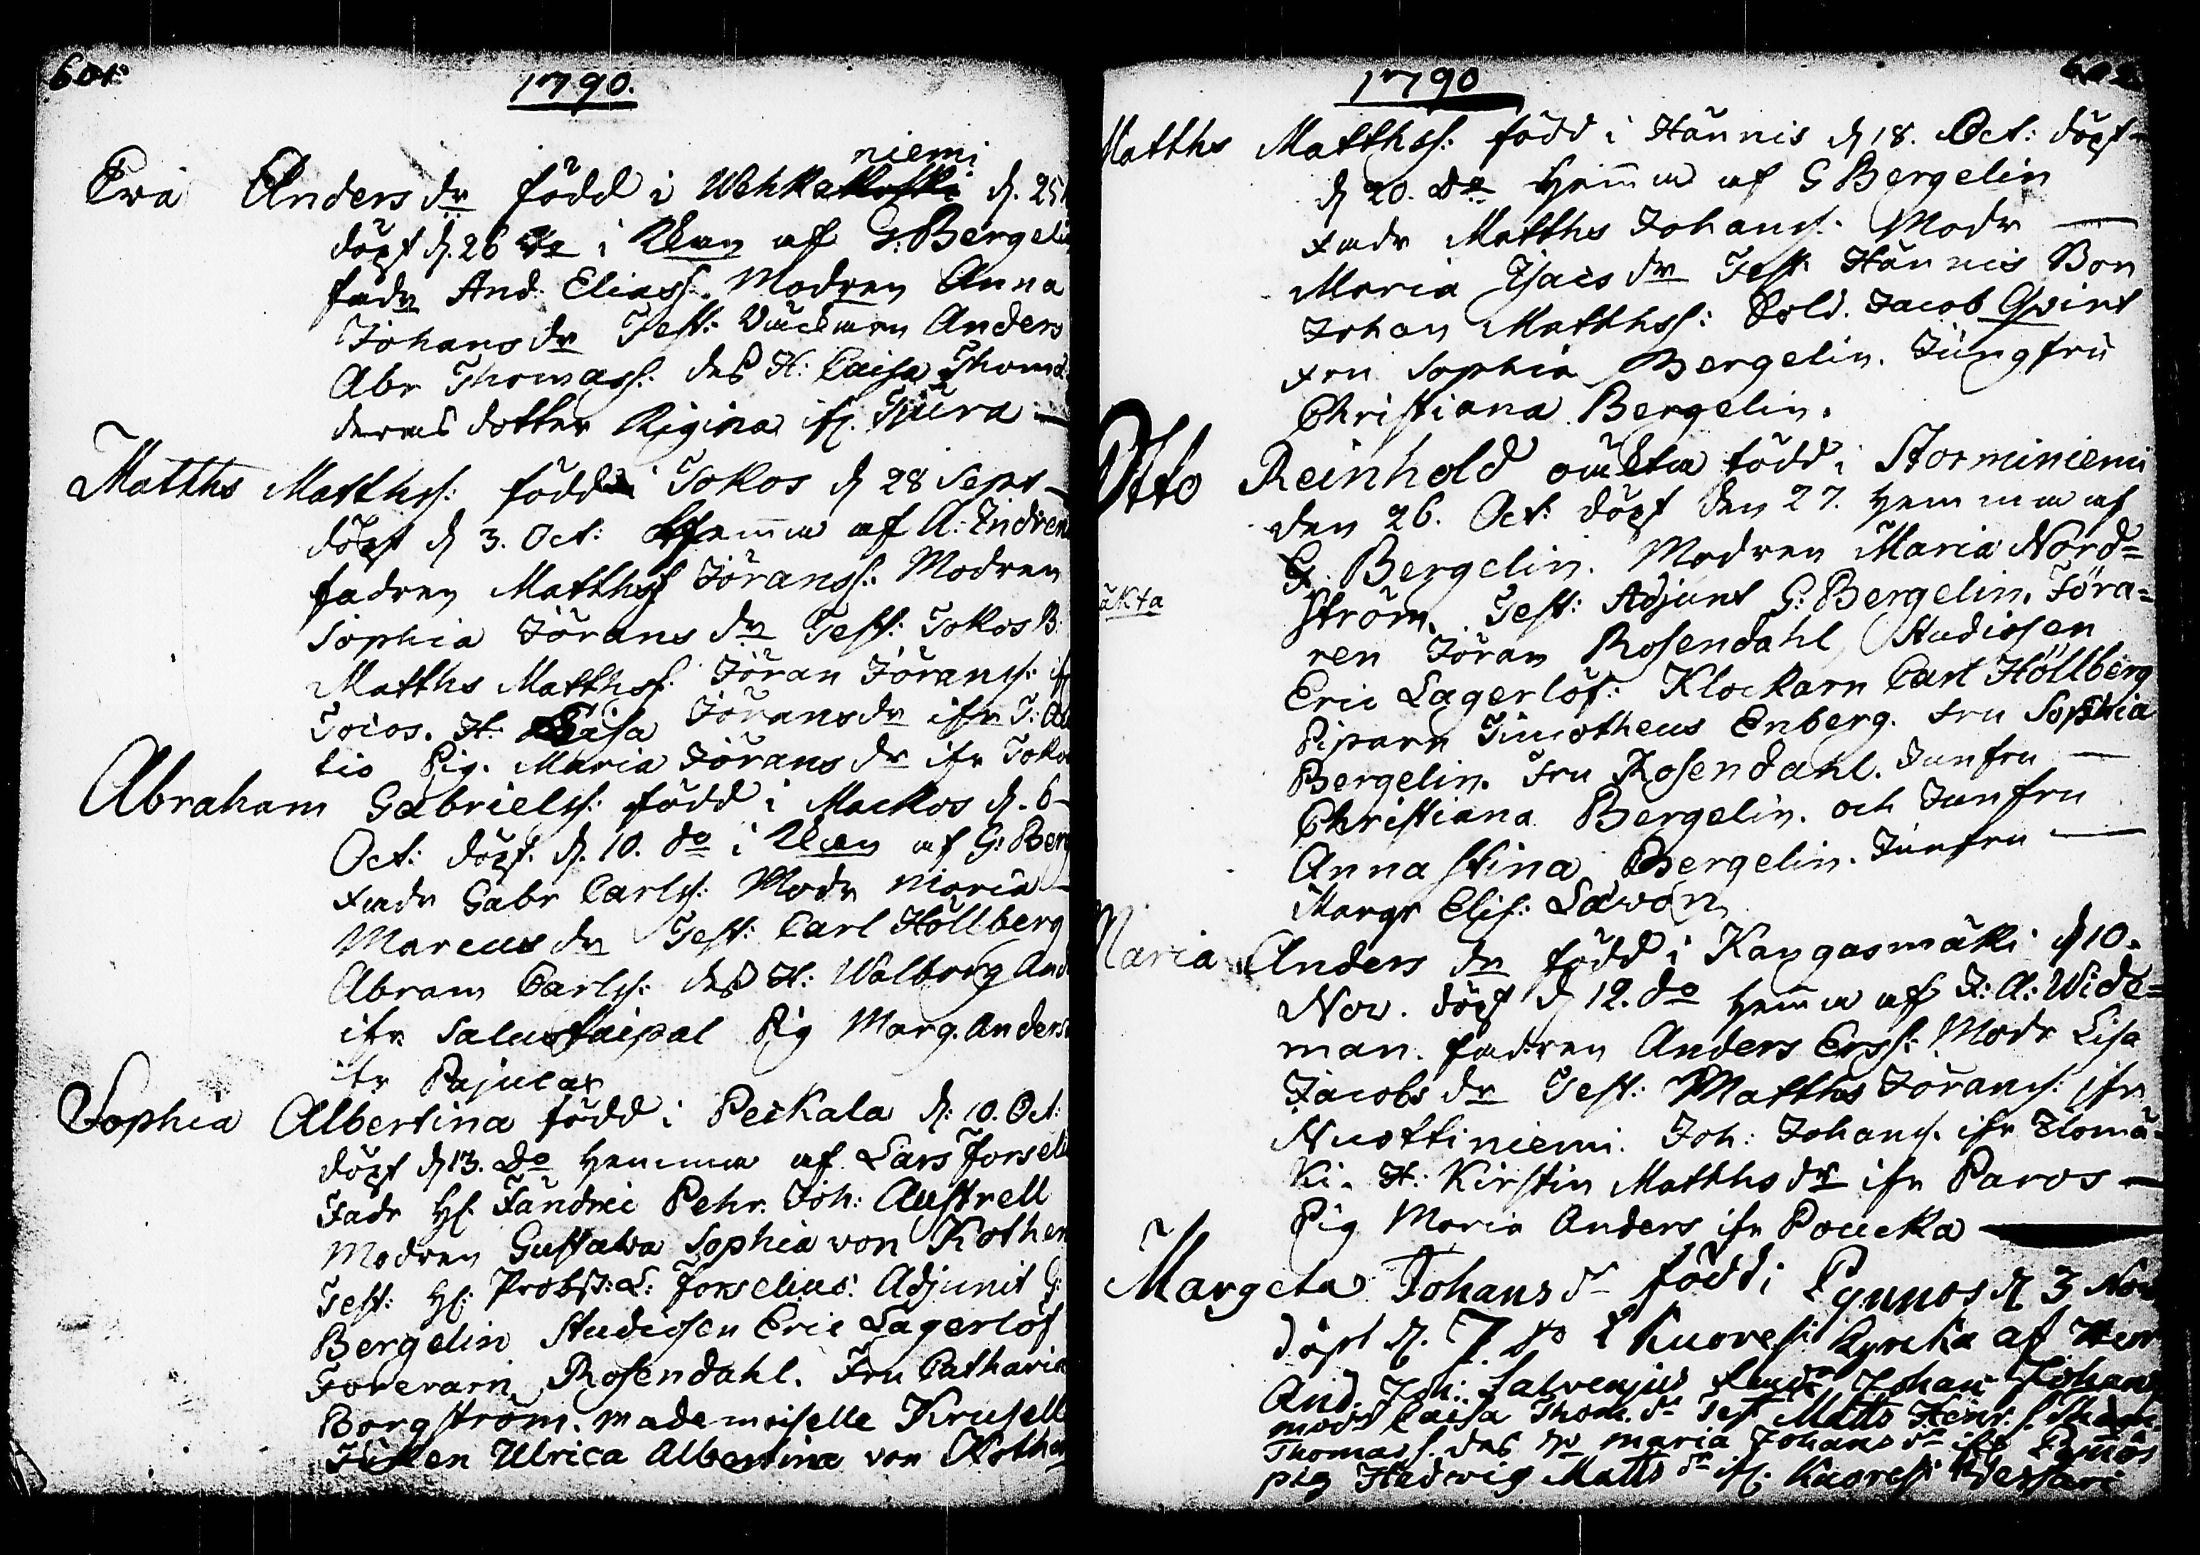 601.
1790.
niemi
Eva Anders dr född i Wehkakoski d. 25
döpt d. 26 do i Kkan af G: Bergelin
fadr And Eliass. Modren Anna
Johans dr Test: Anders
Abr Thomass: des H: Caisa Thoma
dotter Regina ifr
Matths Matthss: född i Tokos d 28 Sept
döpt d 3. Oct: Hemma af A: Indren
fadren Matths Jöranss: Modren
Sophia Jörans dr Test: Tokos B:
Matths Matthss. Jöran Jöranss: if
Toios. H: Lisa Jörans dr ifr
Pig. Maria Jörans dr ifr Toko
Abraham Gabrielss: född i Mackos d. 6
Oct: döpt. d. 10. do i Kkan af G: Berg
Fadr Gabr Carlss: Modr Maria
Marcus dr Test: Carl Höllberg
Abram Carlss: des H: Walborg And
ifr Salustaipal Pig Marg. Anders
ifr Pajula
Sophia Albertina född i Peikala d: 10. Oct:
döpt d 13. do Hemma af Lars Forseli
Fadr Hr Fändric Pehr. Joh: Austrell
Modren Gustava Sophia von Kothen
Test: Hr Probst: L: Forselius: Adjunct G:
Bergelin Studiosen Eric Lagerlöf
Förerarn Rosendahl. Fru Catharin
Borgström. Mademoiselle Krusell
Fröken Ulrica Albertina von Kothen
602
1790
Matths Matthss: född i Hännis d 18. Oct: döpt
d 20. do Hemma af G Bergelin
Fadr Matths Johanss: Modr
Maria Isacs dr Test Hännis Bon
Johan Matthss: Sold. Jacob Qvint
Fru Sophia Bergelin. Jungfru
Christiana Bergelin.
Otto Reinhold oäkta född i Storminiemi
den 26. Oct: döpt den 27. Hemma af
G. Bergelin. Modren Maria Nord=
äkta
ström. Test: Adjunct G: Bergelin. Föra=
ren Jöran Rosendahl Studiosen
Eric Lagerlöf: Klockarn Carl Höllberg
Piparn Timotheus Enberg. Fru Sophia
Bergelin. Fru Rosendahl. Junfru
Christiana Bergelin. och Junfru
Anna Stina Bergelin. Junfru
Margr Elis: Lawon
Maria Anders dr född i Kangasmäki d 10.
Nov. döpt d 12. do Hemma af J: A: Wide=
man. fadren Anders Erss: Modr Lisa
Jacobs dr Test: Matths Jöranss: ifr
Nuottiniemi. Joh: Johanss. ifr Ilomä=
ki. H: Kirstin Matths dr ifr Paros
Pig Maria Anders ifr Poucka
Margeta Johans dr född i Pynnos d 3 Nov
döpt d. 7 do i Kuoves: Kyrcka af Herr
And. Joh: Salvenjus Johan Johans
modr Caisa Thom. dr Test Matts Henr: s.
Thomas s. des hr maria Johans dr ifr
pig Hedwig Matts dr if: Kuoresi